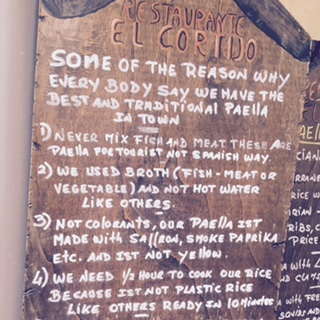 RESTAURANTE
EL CORTIJO
SOME OF THE REASON WHY
EVERY BODY SAY WE HAVE THE
BEST AND TRADITIONAL PAELLA
IN TOWN
1) NEVER MIX FISH AND MEAT THESE ARE
PAELLA FOE TOURIST NOT SPANISH WAY.
2) WE USED BROTH (FISH - MEAT OR
VEGETABLE) AND NOT HOT WATER
LIKE OTHERS.
3) NOT COLORANTS, OUR PAELLA IST
MADE WITH SAFFRON, SMOKE PAPRIKA
ETC. AND IST NOT YELLOW.
4) WE NEED 1/2 HOUR TO COOK OUR RICE
BECAUSE IST NOT PLASTIC RICE
LIKE OTHERS READY IN 10 MINUTES
RICE
PRICE